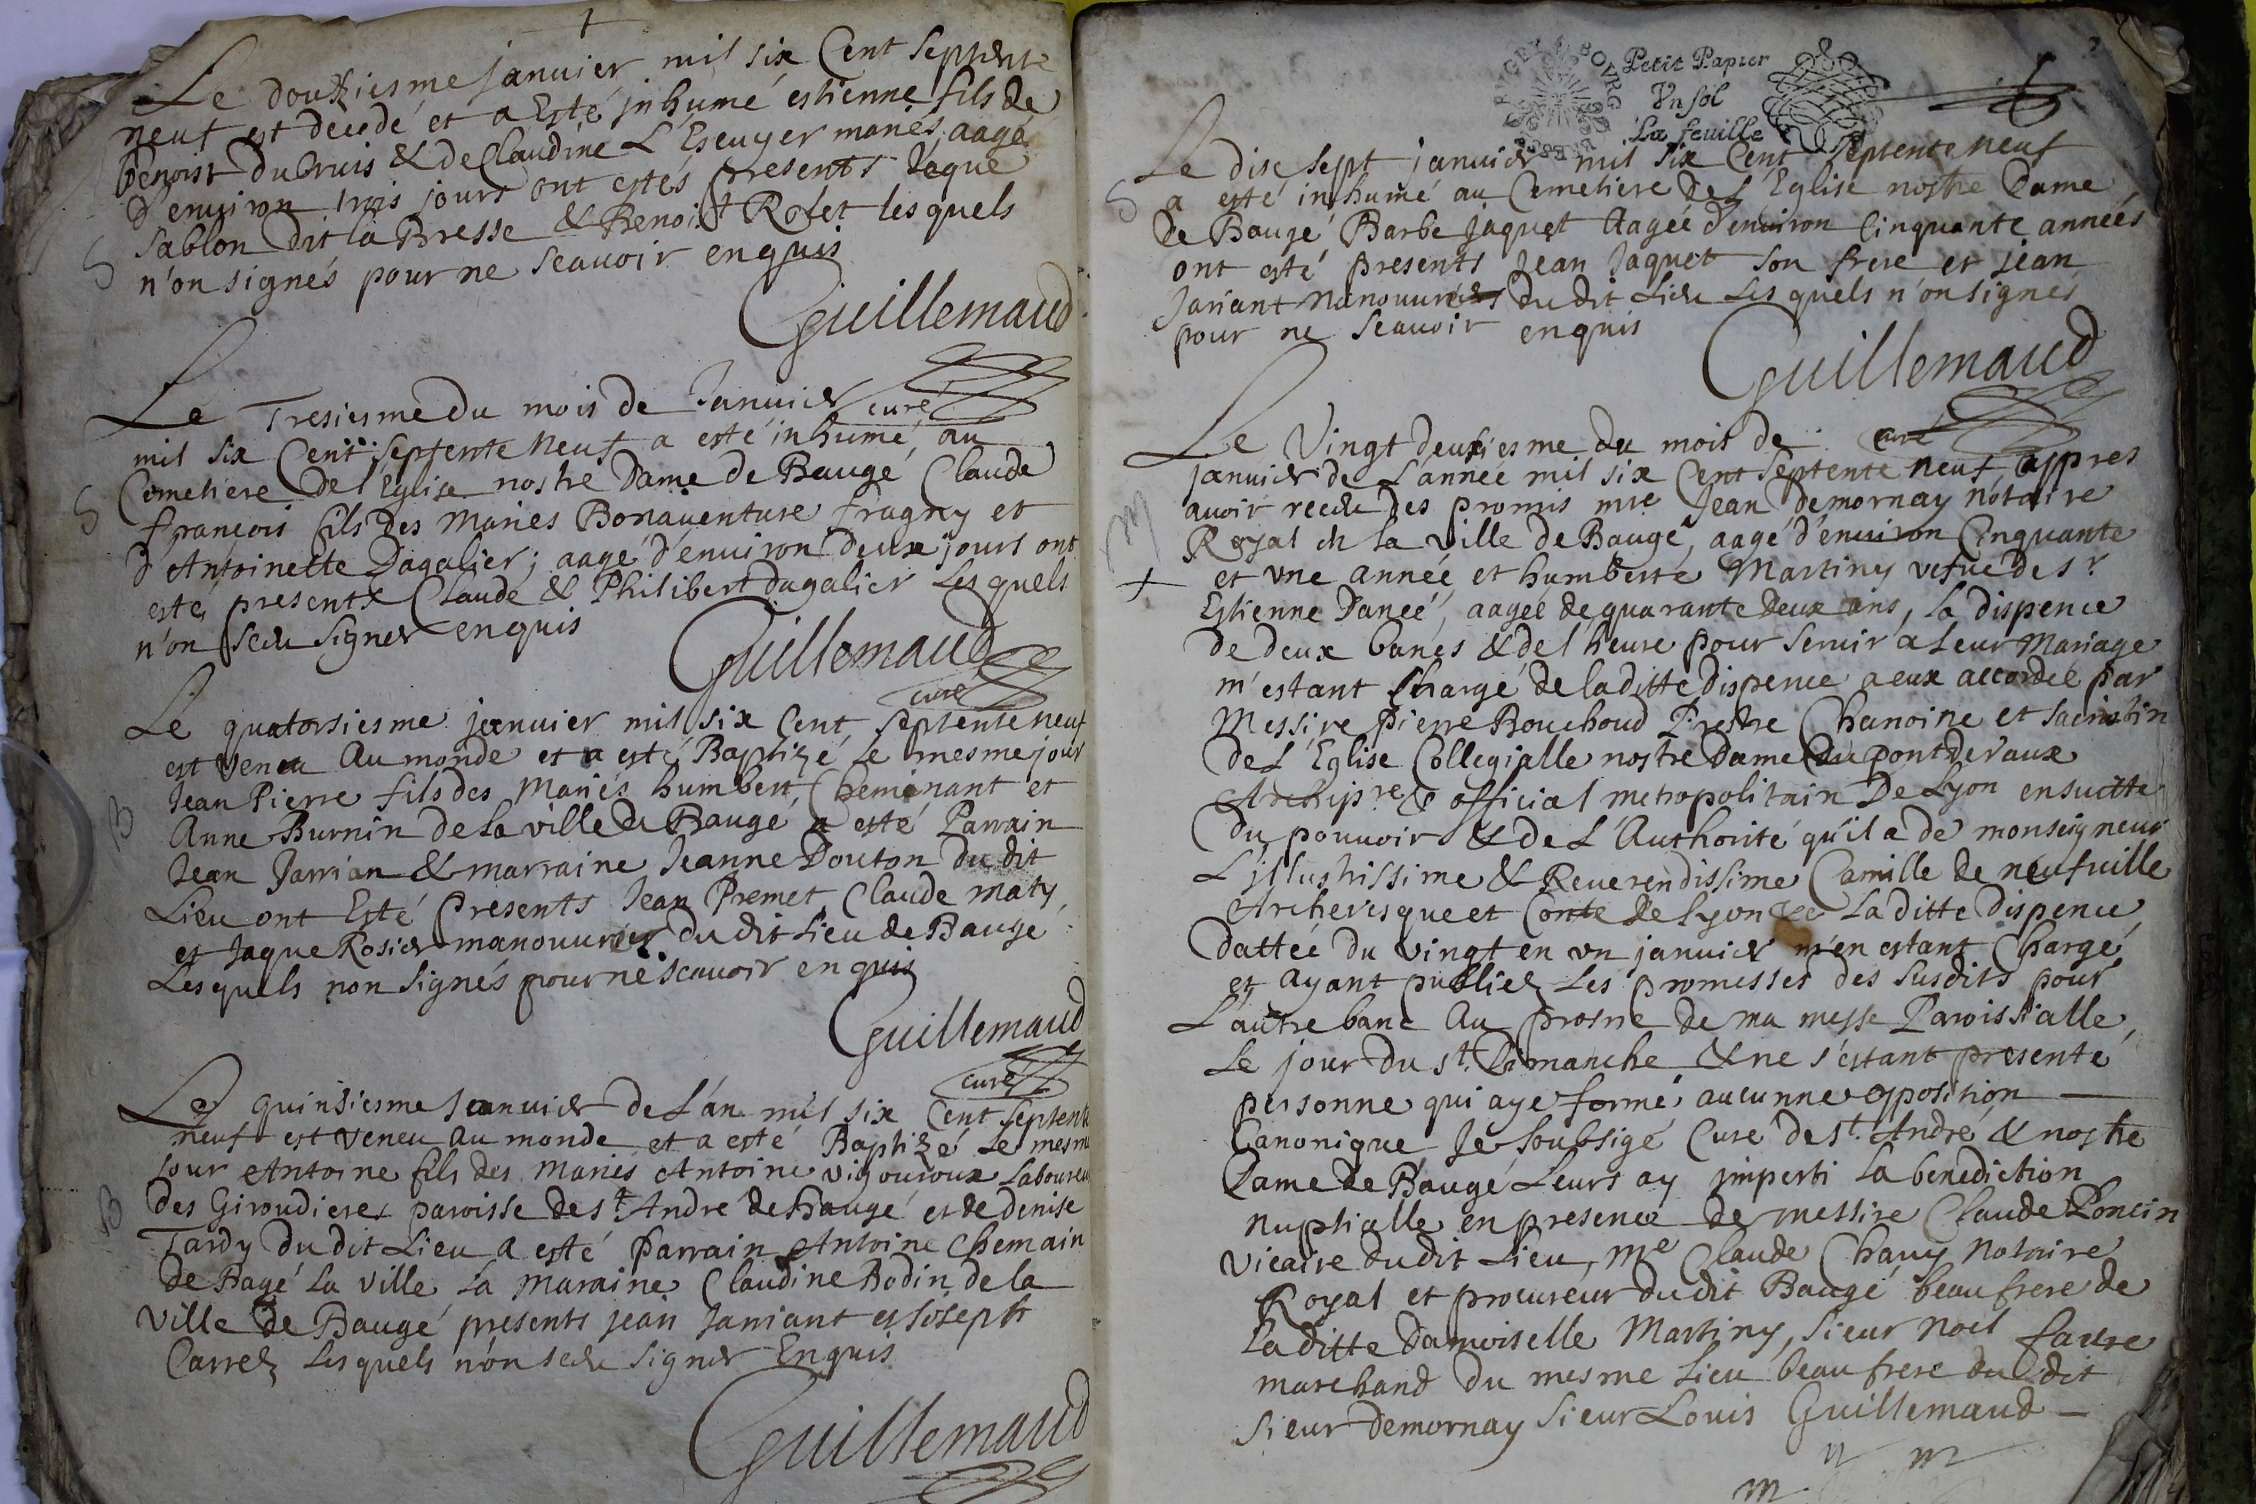 Le douziesme janvier mil six Cent septente
neuf est decedé et a Esté jnhumé estienne fils de
benoist Dubruis & de Claudine L'Escuyer mariés, aagé
d'environ trois jours ont estés presents Jaque
Sablon dit la Bresse & Benoist Rolet lesquels
n'on signés pour ne scauoir enquis
S
Guillemaud
curé
Le Tresiesme du mois de Januier
mil six Cent septente neuf a esté inhumé au
Cemetiere de l'Eglise nostre Dame de Baugé Claude
françois fils des Mariés Bonauenture fragny et
d'Antoinette Dagalier; aagé d'enuiron deux jours ont
esté presents Claude & Philibert dagalier Lesquels
n'on sceu signer enquis
S
Guillemaud
curé
Le quatorsiesme januier mil six Cent septente neuf
est veneu au monde et a esté Baptizé le mesme jour
Jean Pierre fils des Mariés humbert Cheminant et
Anne Burnin de la ville de Baugé a esté Parrain
Jean Jarrian & marraine Jeanne Douton du dit
Lieu ont Esté presents Jean Premet, Claude maty,
et Jaque Rosier manouurier du dit Lieu de Baugé
Lesquels non signés pour ne scauoir enquis
B
Guillemaud
curé
Le quinsiesme Januier de L'an mil six Cent septente
neuf est veneu au monde et a esté Baptizé Le mesme
jour Antoine fils des Mariés Antoine vigouroux Laboureur
des Giroudieres paroisse de st André de baugé et de denise
Tardy du dit Lieu a esté parrain Antoine Chemain
de Bagé la ville la Maraine Claudine Bodin de la
ville de Baugé presents jean Janiant et Joseph
Carrel Lesquels n'on sceu signer Enquis
B
Guillemaud
BOVRG
Petit Papier
Vn sol
La feuille
Le dise sept januier mil six Cent septente neuf
a esté inhumé au Cemetiere de L'Eglise nostre Dame
de Baugé Barbe Jaquet Aagée d'enuiron Cinquante années
ont esté presents Jean Jaquet son frere et jean
Jariant manouuriers du dit Lieu Lesquels n'on signes
pour ne scauoir enquis
S
Guillemaud
curé
Le Vingt deusiesme du mois de
januier de L'année mil six Cent septente neuf, appres
auoir receu des promis mre Jean Demornay notaire
Royal de la ville de Baugé, aagé d'enuiron Cinquante
et vne année et humberte Martiny vefue de sr
Estienne Daneé, aageé de quarante deux ans, la dispence
de deux bancs & de l'heure pour seruir a Leur Mariage
m'estant chargé de la ditte dispence a eux accordée par
Messire Pierre Bouchoud Prestre Chanoine et sacristin
de L'Eglise Collegialle nostre Dame du pont de vaux
Archipre & official metropolitain De Lyon ensuitte
du pouuoir & de L'Authorité qu'il a de monseigneur
L'jllustrissime & Reuerendissime Camille de neufuille
Archevesque et Conte de Lyon La ditte dispence
dattée du vingt en vn januier m'en estant Chargé
et ayant publiez Les promesses des susdits pour
L'autre banc au prosne de ma messe Paroissialle
Le jour du st. Dimanche & ne s'estant presenté
personne qui aye formé aucunne opposition
Canonique Je soubsigé Curé de st. André & nostre
Dame de Baugé Leurs ay jmperti la benediction
nuptialle en presence de messire Claude Poncin
vicaire dudit Lieu, Me Claude Chauy Notaire
Royal et procureur dudit Baugé beau frere de
La ditte damoiselle Martiny, sieur noel faure
marchand du mesme Lieu beau frere du dit
sieur Demornay sieur Louis Guillemaud